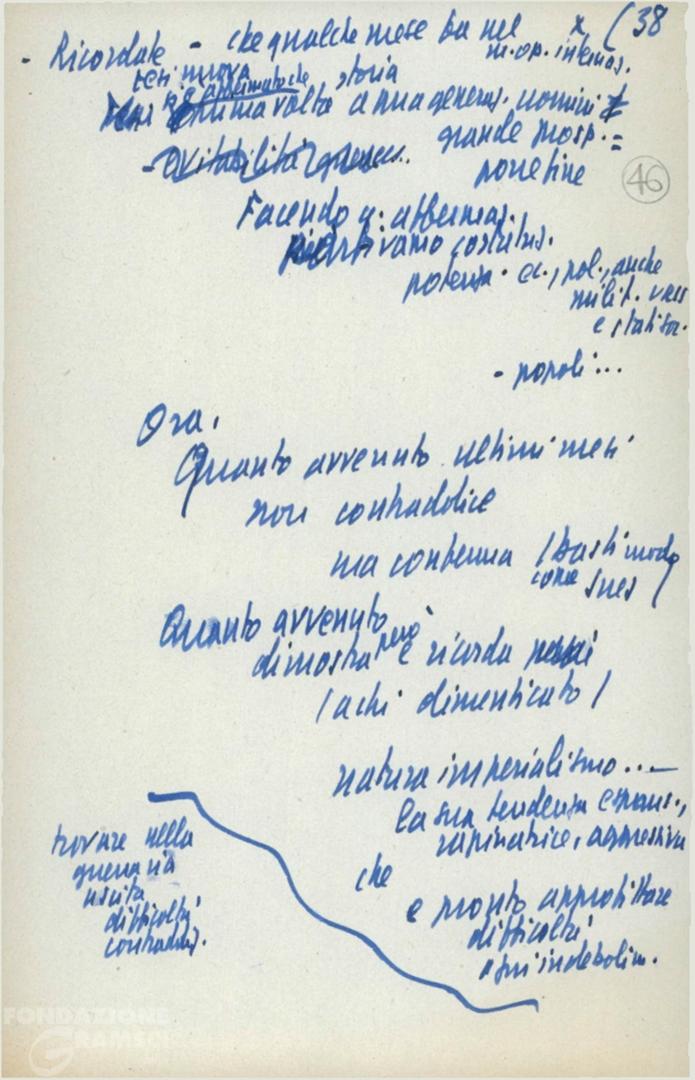 x (38
- Ricordate - che qualche mese fa nel
m. op. internas.
tesi nuova
si è affermato che storia
prima volta a una generaz. uomini
grande prosp. =
- evitabilità guerre..
porre fine
46
Facendo q. affermaz.
partivamo costituz.
potenza . ec., pol., anche
milit. URSS
e stati soc.
- popoli...
Ora,
Quanto avvenuto ultimi mesi
non contraddice
ma conferma (basti modo
come Suez)
Quanto avvenuto
però
dimostra e ricorda
(a chi dimenticato)
natura imperialismo...-
la sua tendenza espans.,
rapinatrice, aggressiva
che
è pronto approfittare
difficoltà
indebolim.
trovare nella
guerra via
uscita
difficoltà
contraddiz.
FONDAZIONE
GRAMSCI